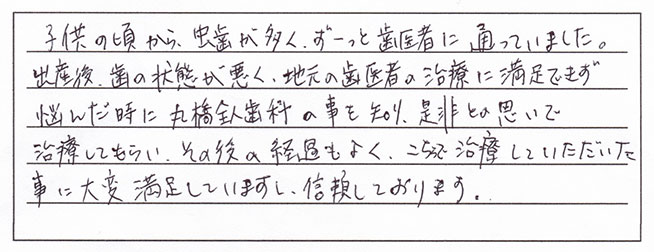 子供の頃から、虫歯が多く、ずーっと歯医者に通っていました。
出産後、歯の状態が悪く、地元の歯医者の治療に満足できず
悩んだ時に丸橋全人歯科の事を知り、是非との思いで
治療してもらい、その後の経過もよく、こちらで治療していただいた
事に大変満足していますし、信頼しております。